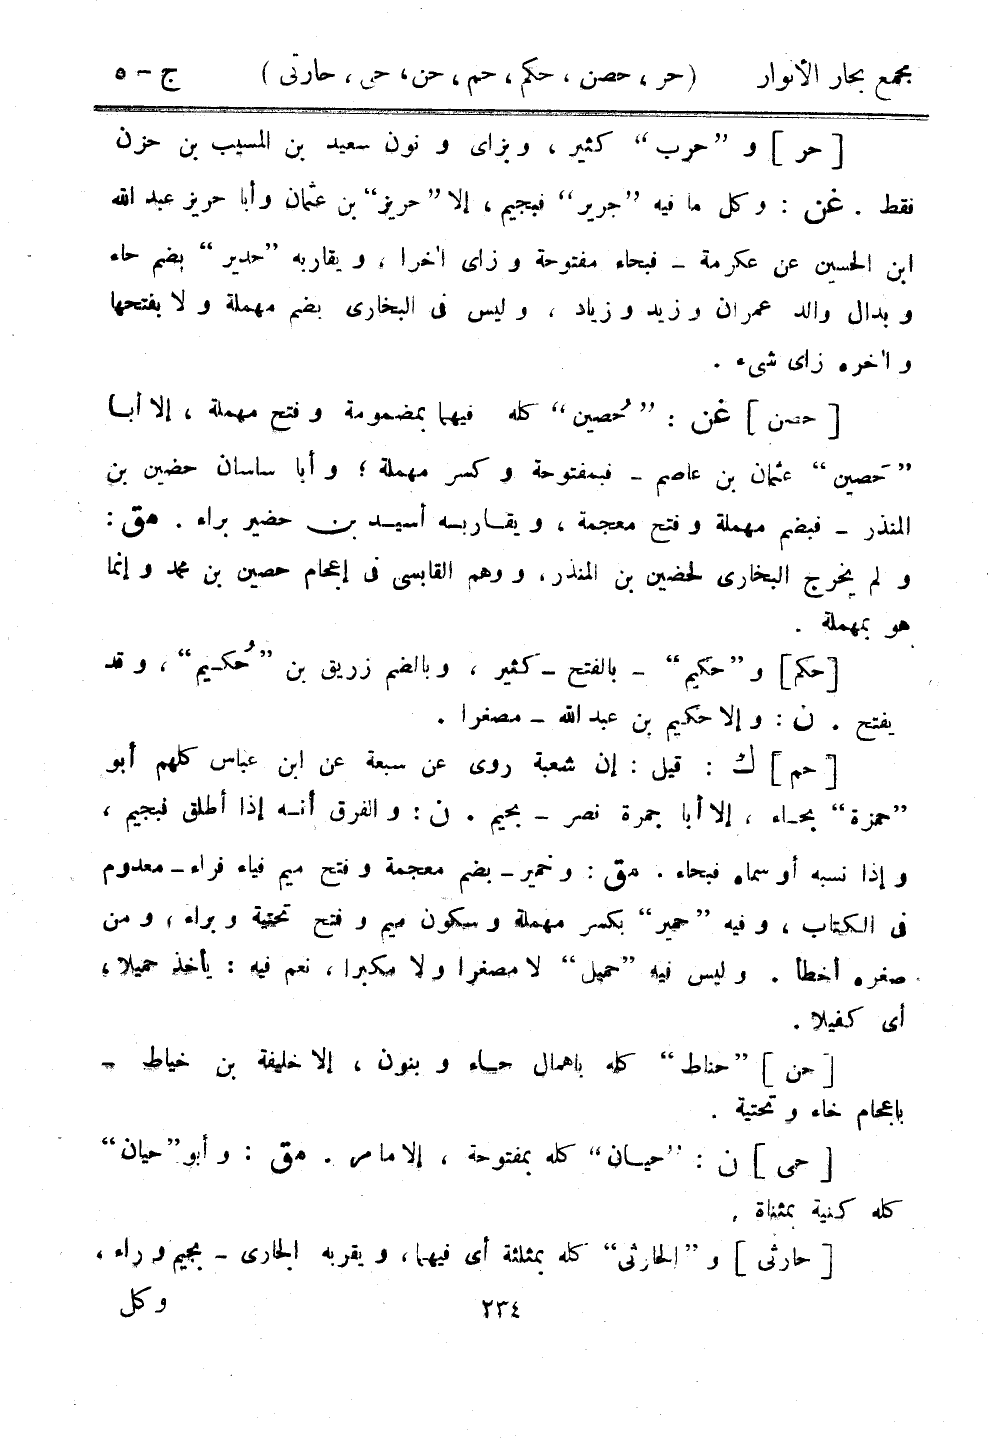 مجمع بحار الأنوار (حر ، حصن ، حكم ، حم ، حن ، حى ، حارثى) ج - ٥
[ حر ] و ”حرب“ كثير ، و بزاى و نون سعيد بن المسيب بن حزن
فقط . غن : و كل ما فيه ”جرير“ فبجيم ، إلا ”حريز“ بن عثمان و أبا حريز عبد الله
ابن الحسين عن عكرمة ــ فبحاء مفتوحة و زاى اٰخرا ، و يقاربه ”حدير“ بضم حاء
و بدال والد عمران و زيد و زياد ، و ليس فى البخارى بضم مهملة و لا بفتحها
و اٰخره زاى شىء .
[ حصن ] غن : ”حُصين“ كله فيهما بمضمومة و فتح مهملة ، إلا أبا
”حَصين“ عثمان بن عاصم ــ فبمفتوحة و كسر مهملة ؛ و أبا ساسان حضين بن
المنذر ــ فبضم مهملة و فتح معجمة ، و يقاربه أسيد بن حضير براء . مق :
و لم يخرج البخارى لحضين بن المنذر ، و وهم القابسى فى إعجام حصين بن محمد و إنما
هو بمهملة .
[حكم] و ”حكيم“ ــ بالفتح ــ كثير ، و بالضم زريق بن ”حُكيم“ ، و قد
يفتح . ن : و إلا حكيم بن عبد الله ــ مصغرا .
[ حم ] ك : قيل : إن شعبة روى عن سبعة عن ابن عباس كلهم أبو
”حمزة“ بحاء ، إلا أبا جمرة نصر ــ بجيم . ن : و الفرق أنه إذا أطلق فبجيم ،
و إذا نسبه أو سماه فبحاء . مق : و خمير ــ بضم معجمة و فتح ميم فياء فراء ــ معدوم
فى الكتاب ، و فيه ”حمير“ بكسر مهملة و سكون ميم و فتح تحتية و براء ، و من
صغره أخطأ . و ليس فيه ”حميل“ لا مصغرا و لا مكبرا ، نعم فيه : يأخذ حميلا ،
أى كفيلا .
[ حن ] ”حناط“ كله باهمال حاء و بنون ، إلا خليفة بن خياط ــ
باعجام خاء و تحتية .
[ حى ] ن : ”حيان“ كله بمفتوحة ، إلا ما مر . مق : و أبو ”حيان“
كله كنية بمثناة .
[ حارثى ] و ”الحارثى“ كله بمثلثة أى فيهما ، و يقربه الجارى ــ بجيم و راء ،
٢٣٤ و كل